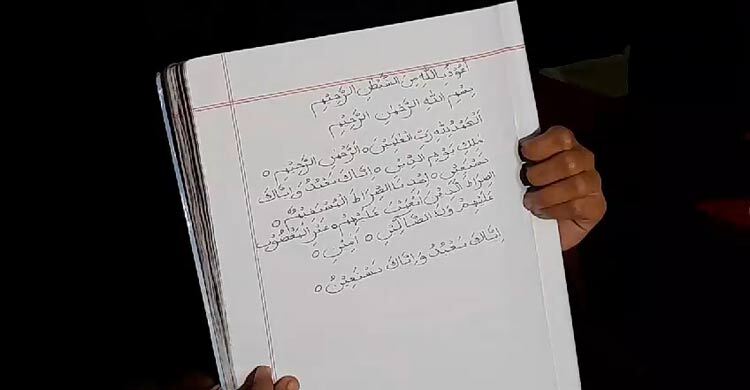 اَعُوْذُ بِاللّٰهِ مِنَ الشَّيْطٰنِ الرَّجِيْمِ
بِسْمِ اللّٰهِ الرَّحْمٰنِ الرَّحِيْمِ
اَلْحَمْدُ لِلّٰهِ رَبِّ الْعٰلَمِيْنَ ○ الرَّحْمٰنِ الرَّحِيْمِ ○
مٰلِكِ يَوْمِ الدِّيْنِ ○ اِيَّاكَ نَعْبُدُ وَاِيَّاكَ
نَسْتَعِيْنُ ○ اِهْدِنَا الصِّرَاطَ الْمُسْتَقِيْمَ ○
الصِّرَاطَ الَّذِيْنَ اَنْعَمْتَ عَلَيْهِمْ ○ غَيْرِ الْمَغْضُوْبِ
عَلَيْهِمْ وَلَا الضَّآلِّيْنَ ○ اٰمِيْن ○
اِيَّاكَ نَعْبُدُ وَاِيَّاكَ نَسْتَعِيْنُ ○